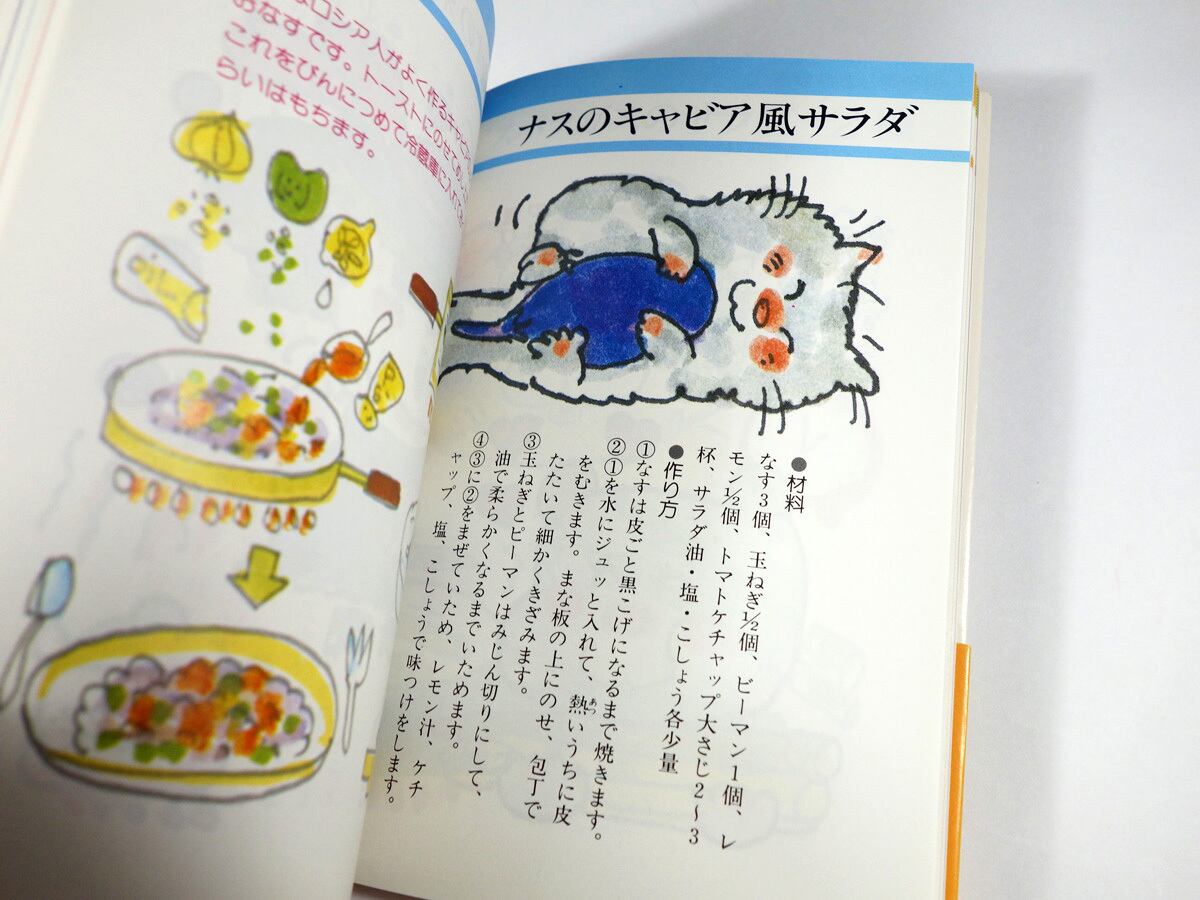 ナスのキャビア風サラダ
●材料
なす3個、玉ねぎ½個、ピーマン1個、レ
モン½個、トマトケチャップ大さじ2〜3
杯、サラダ油・塩・こしょう各少量
●作り方
①なすは皮ごと黒こげになるまで焼きます。
②①を水にジュッと入れて、熱いうちに皮
をむきます。まな板の上にのせ、包丁で
たたいて細かくきざみます。
③玉ねぎとピーマンはみじん切りにして、
油で柔らかくなるまでいためます。
④③に②をまぜていため、レモン汁、ケチ
ャップ、塩、こしょうで味つけをします。
なロシア人がよく作るキャビ
おなすです。トーストにのせて
これをびんにつめて冷蔵庫に入れて
らいはもちます。